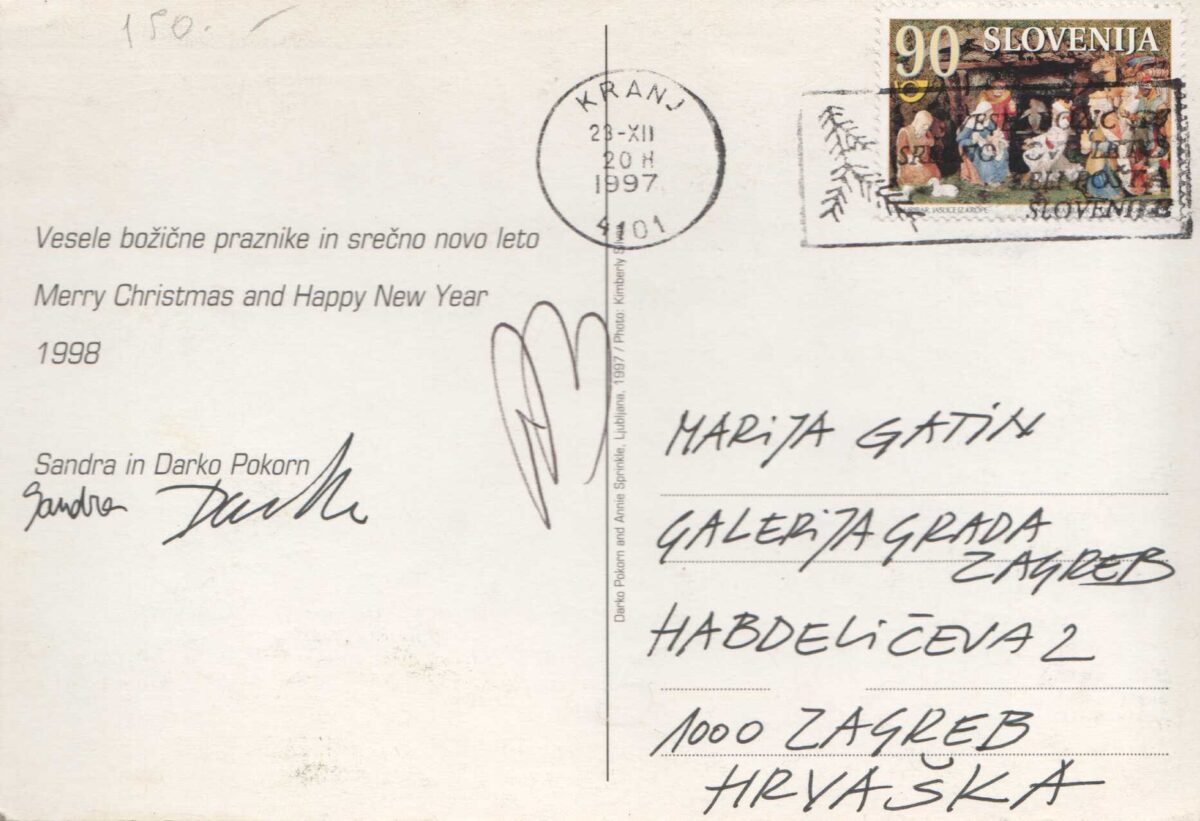 150.-
90 SLOVENIJA
KRANJ
23-XII
20 H
1997
4101
SLOVENIJE
Vesele božične praznike in srečno novo leto
Merry Christmas and Happy New Year
1998
Sandra in Darko Pokorn
Sandra Darko
Darko Pokorn and Annie Sprinkle, Ljubljana, 1997 / Photo: Kimberly
MARiJA GATiN
GALERiJA GRADA
ZAGREB
HABDELiČEVA 2
1000 ZAGREB
HRVAŠKA